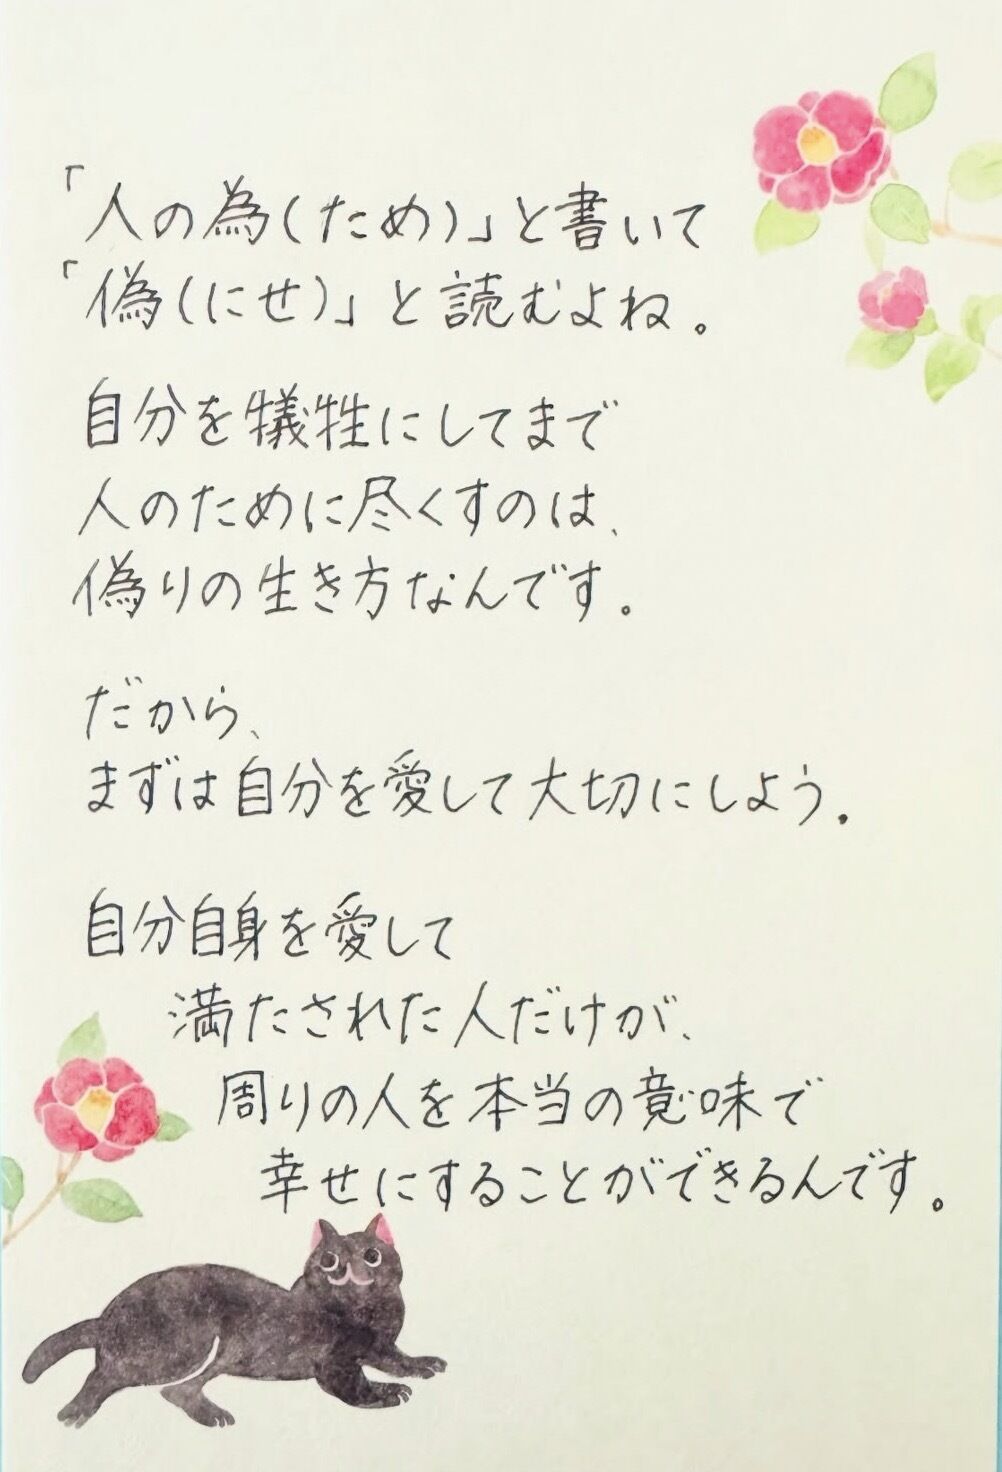 「人の為(ため)」と書いて
「偽(にせ)」と読むよね。
自分を犠牲にしてまで
人のために尽くすのは、
偽りの生き方なんです。
だから、
まずは自分を愛して大切にしよう。
自分自身を愛して
満たされた人だけが、
周りの人を本当の意味で
幸せにすることができるんです。